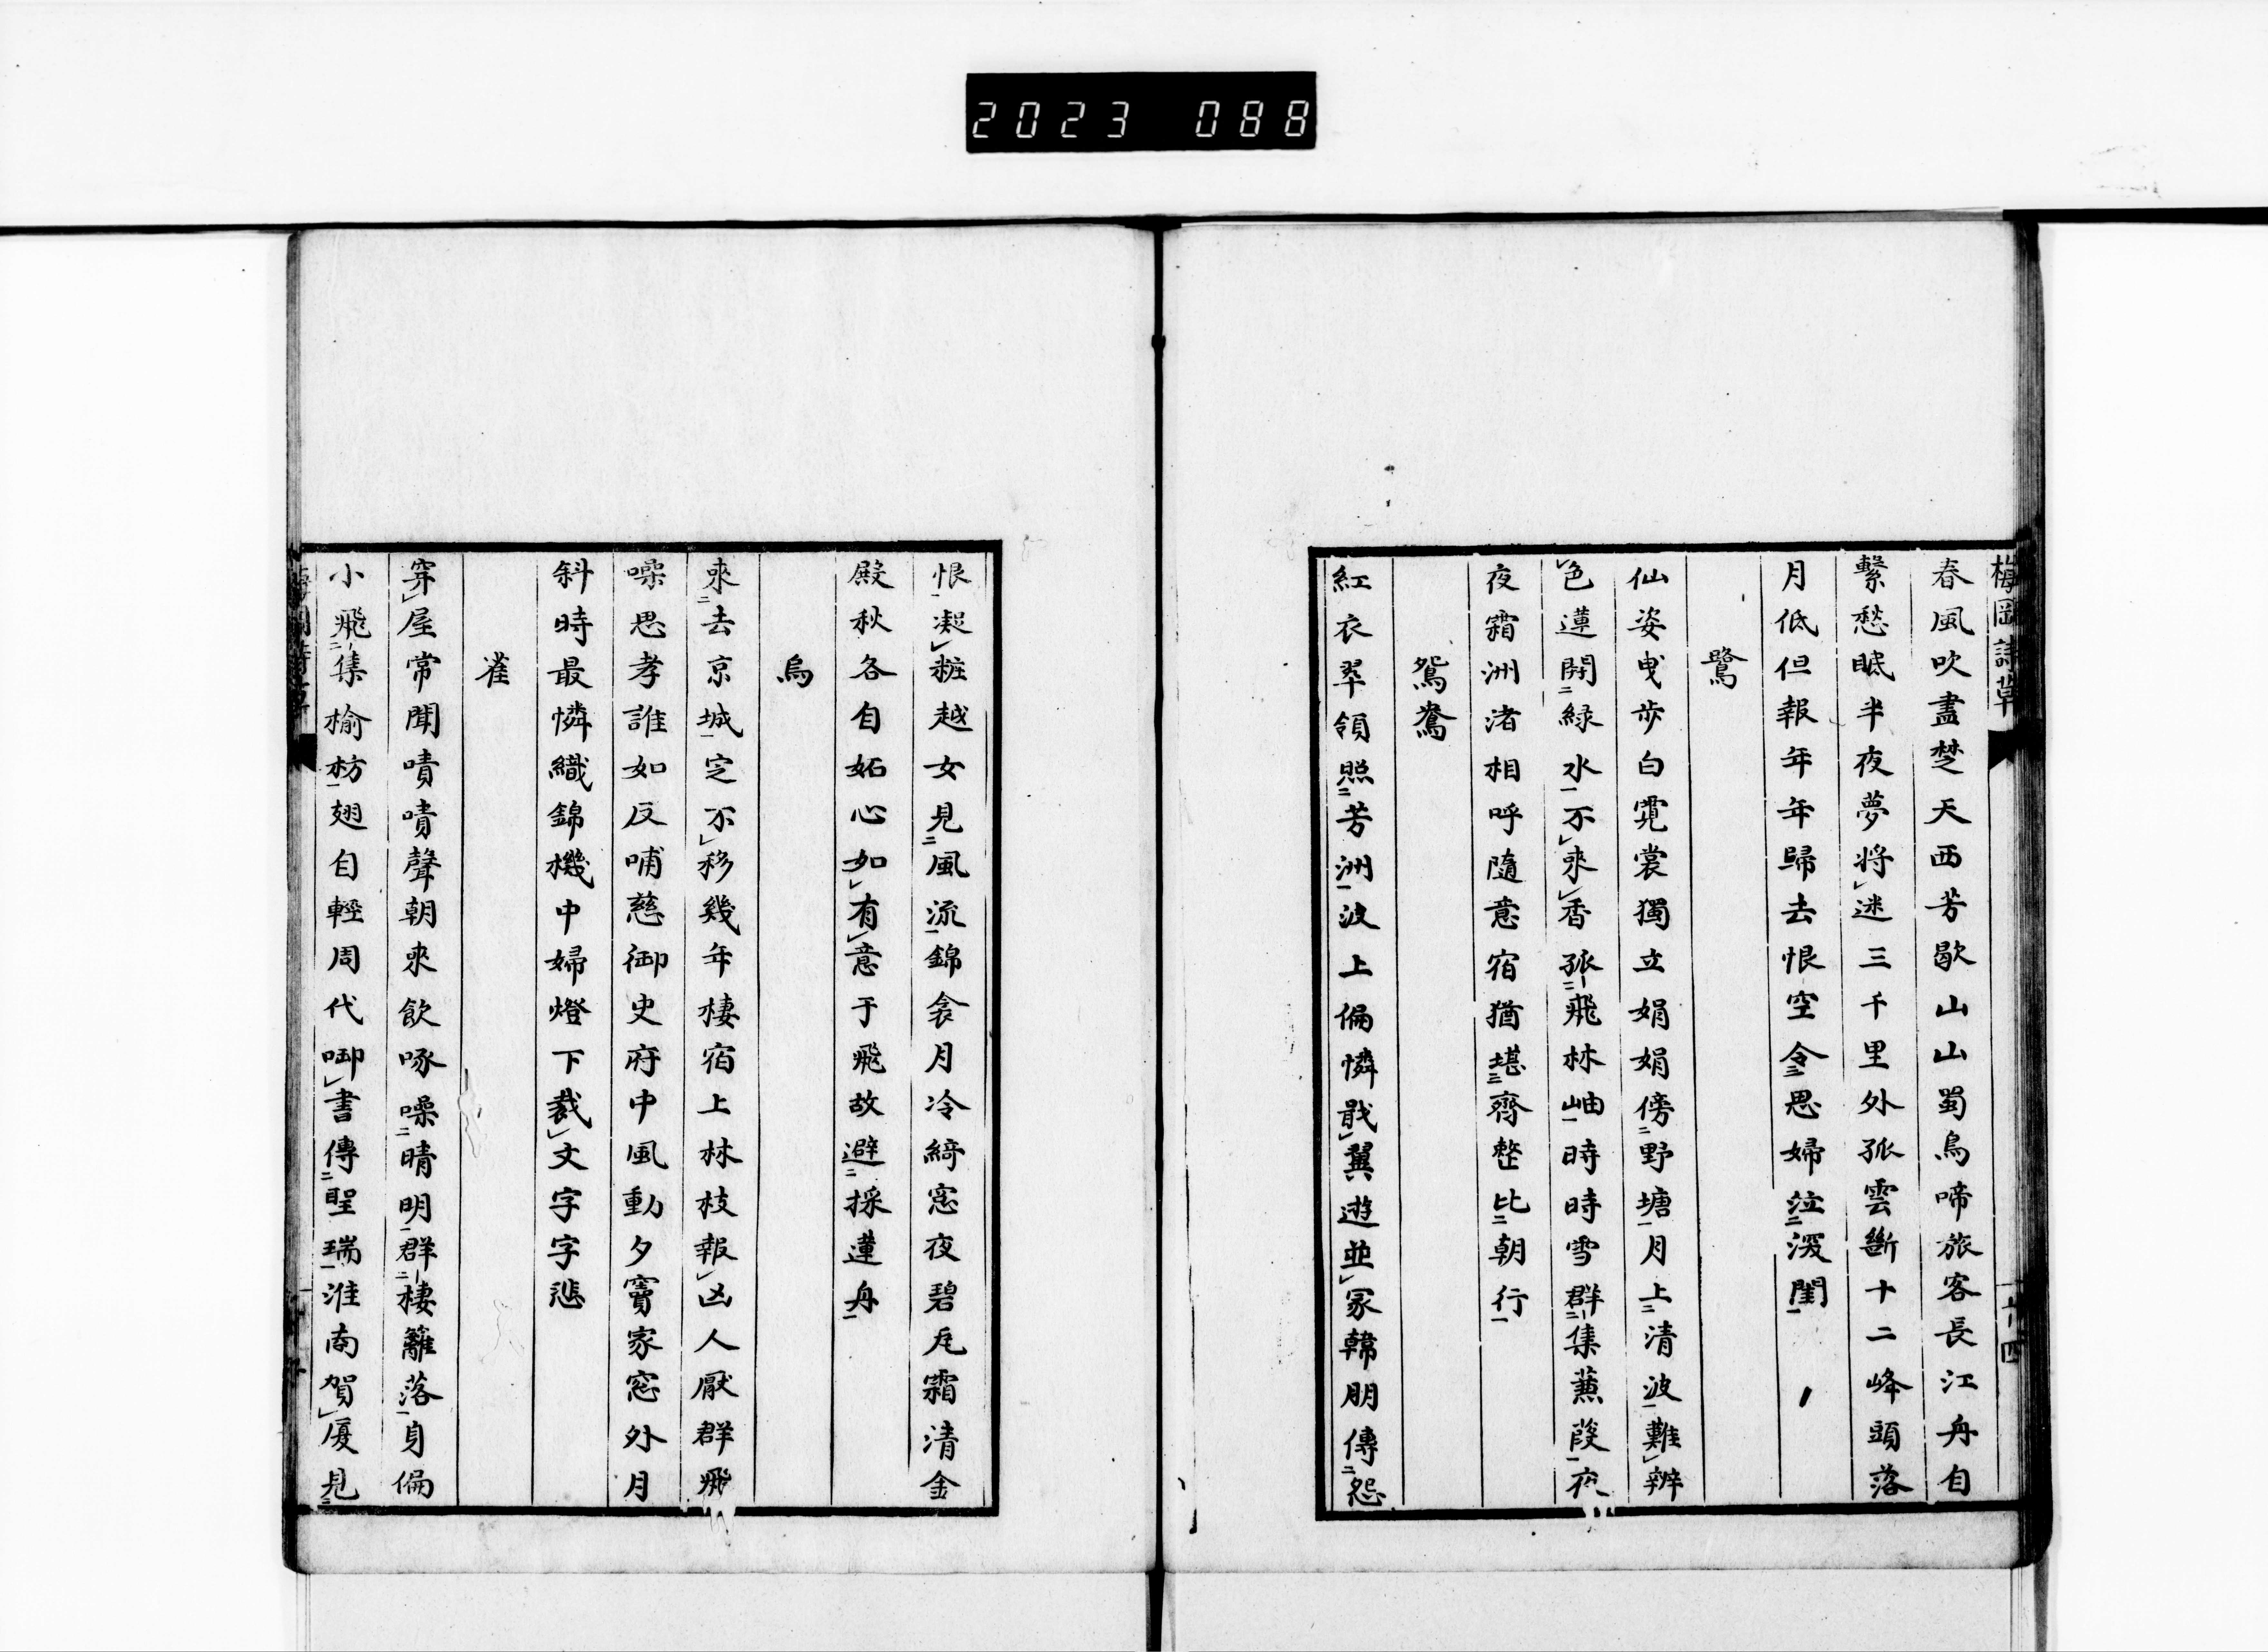 2023 088
梅岡詩草
春風吹盡楚天西芳歇山山蜀鳥啼旅客長江舟自
繋愁眠半夜夢將迷三千里外孤雲斷十二峰頭落
月低但報年年歸去恨空令思婦泣深閨
鷺
仙姿曳步白霓裳獨立娟娟傍野塘月上清波難辨
色蓮開緑水不來香孤飛林岫時時雪群集蒹葭夜
夜霜洲渚相呼隨意宿猶堪齊整比朝行
鴛鴦
紅衣翠領照芳洲波上偏憐戢翼遊並冢韓朋傳怨
恨凝粧越女見風流錦衾月冷綺窓夜碧瓦霜清金
殿秋各自妬心如有意于飛故避採蓮舟
烏
來去京城定不移幾年棲宿上林枝報凶人厭群飛
噪思孝誰如反哺慈御史府中風動夕竇家窓外月
斜時最憐織錦機中婦燈下裁文字字悲
雀
穿屋常聞嘖嘖聲朝來飲啄噪晴明群棲籬落身偏
小飛集楡枋翅自輕周代啣書傳聖瑞淮南賀厦見